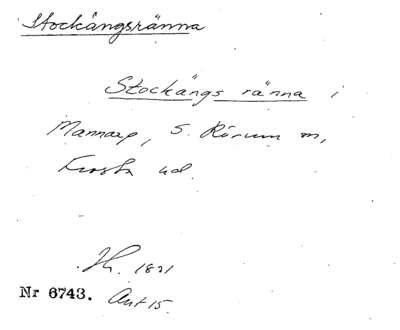 Stockängsränna
Stockängs ränna i
Mannarp, S. Rörum m,
Frosta hd.
H. 1821
Nr 6743. Ant 15.